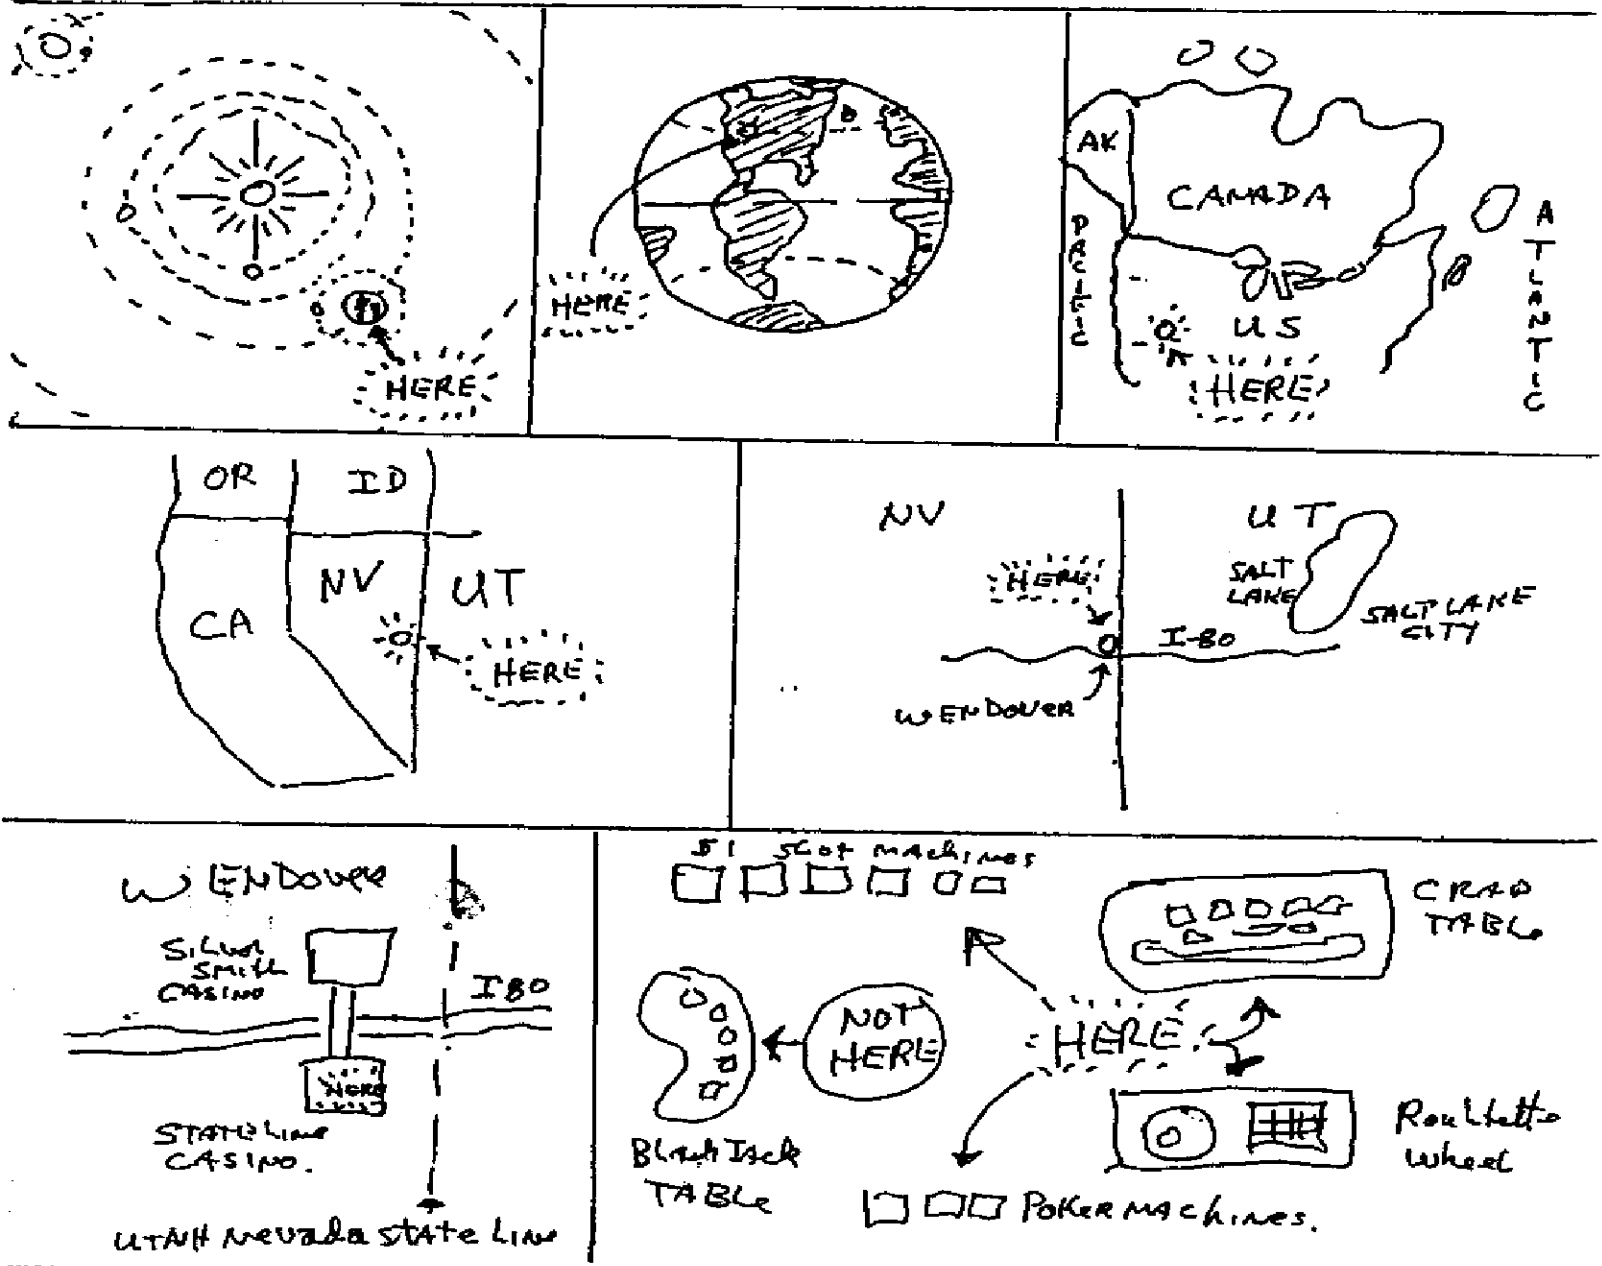 HERE
HERE
AK
CANADA
PACIFIC
ATLANTIC
US
HERE
OR
ID
NV
UT
CA
HERE
NV
UT
HERE
SALT
LAKE
SALT LAKE
CITY
I-80
WENDOVER
WENDOVER
SILVER
SMITH
CASINO
I 80
HERE
STATELINE
CASINO.
UTAH NevadA STATE LINE
$1 Slot MAChines
CRAP
TABLE
NOT
HERE
HERE
BlackJack
TABLE
Roulhette
wheel
POKER MAChiNES.